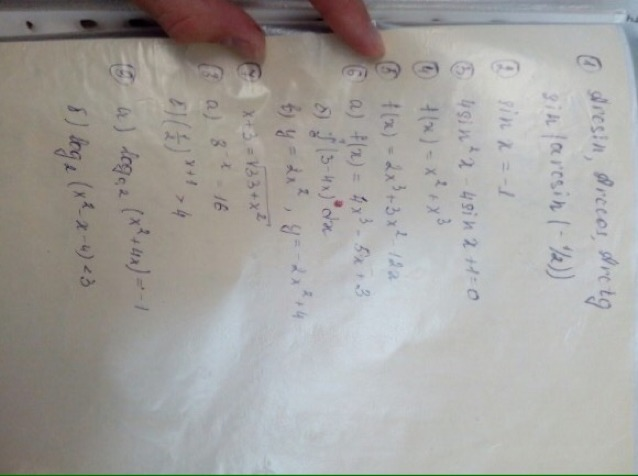 ① Arcsin, Arccos, Arctg
sin(arcsin(-1/2))
② sin x = -1
③ 4sin²x - 4sin x + 1 = 0
④ f(x) = x² + x³
⑤ f(x) = 2x³ + 3x² -
⑥ а) f(x) = 4x³ - 5x + 3
б) (3-4x) dx
в) y = 2x², y = -2x² + 4
x - 3 = √33 + x²
а) 8⁻ˣ = 16
(1/2)ˣ⁺¹ > 4
а) log₀,₂ (x² + 4x) = -1
б) log₂ (x² - x - 4) < 3